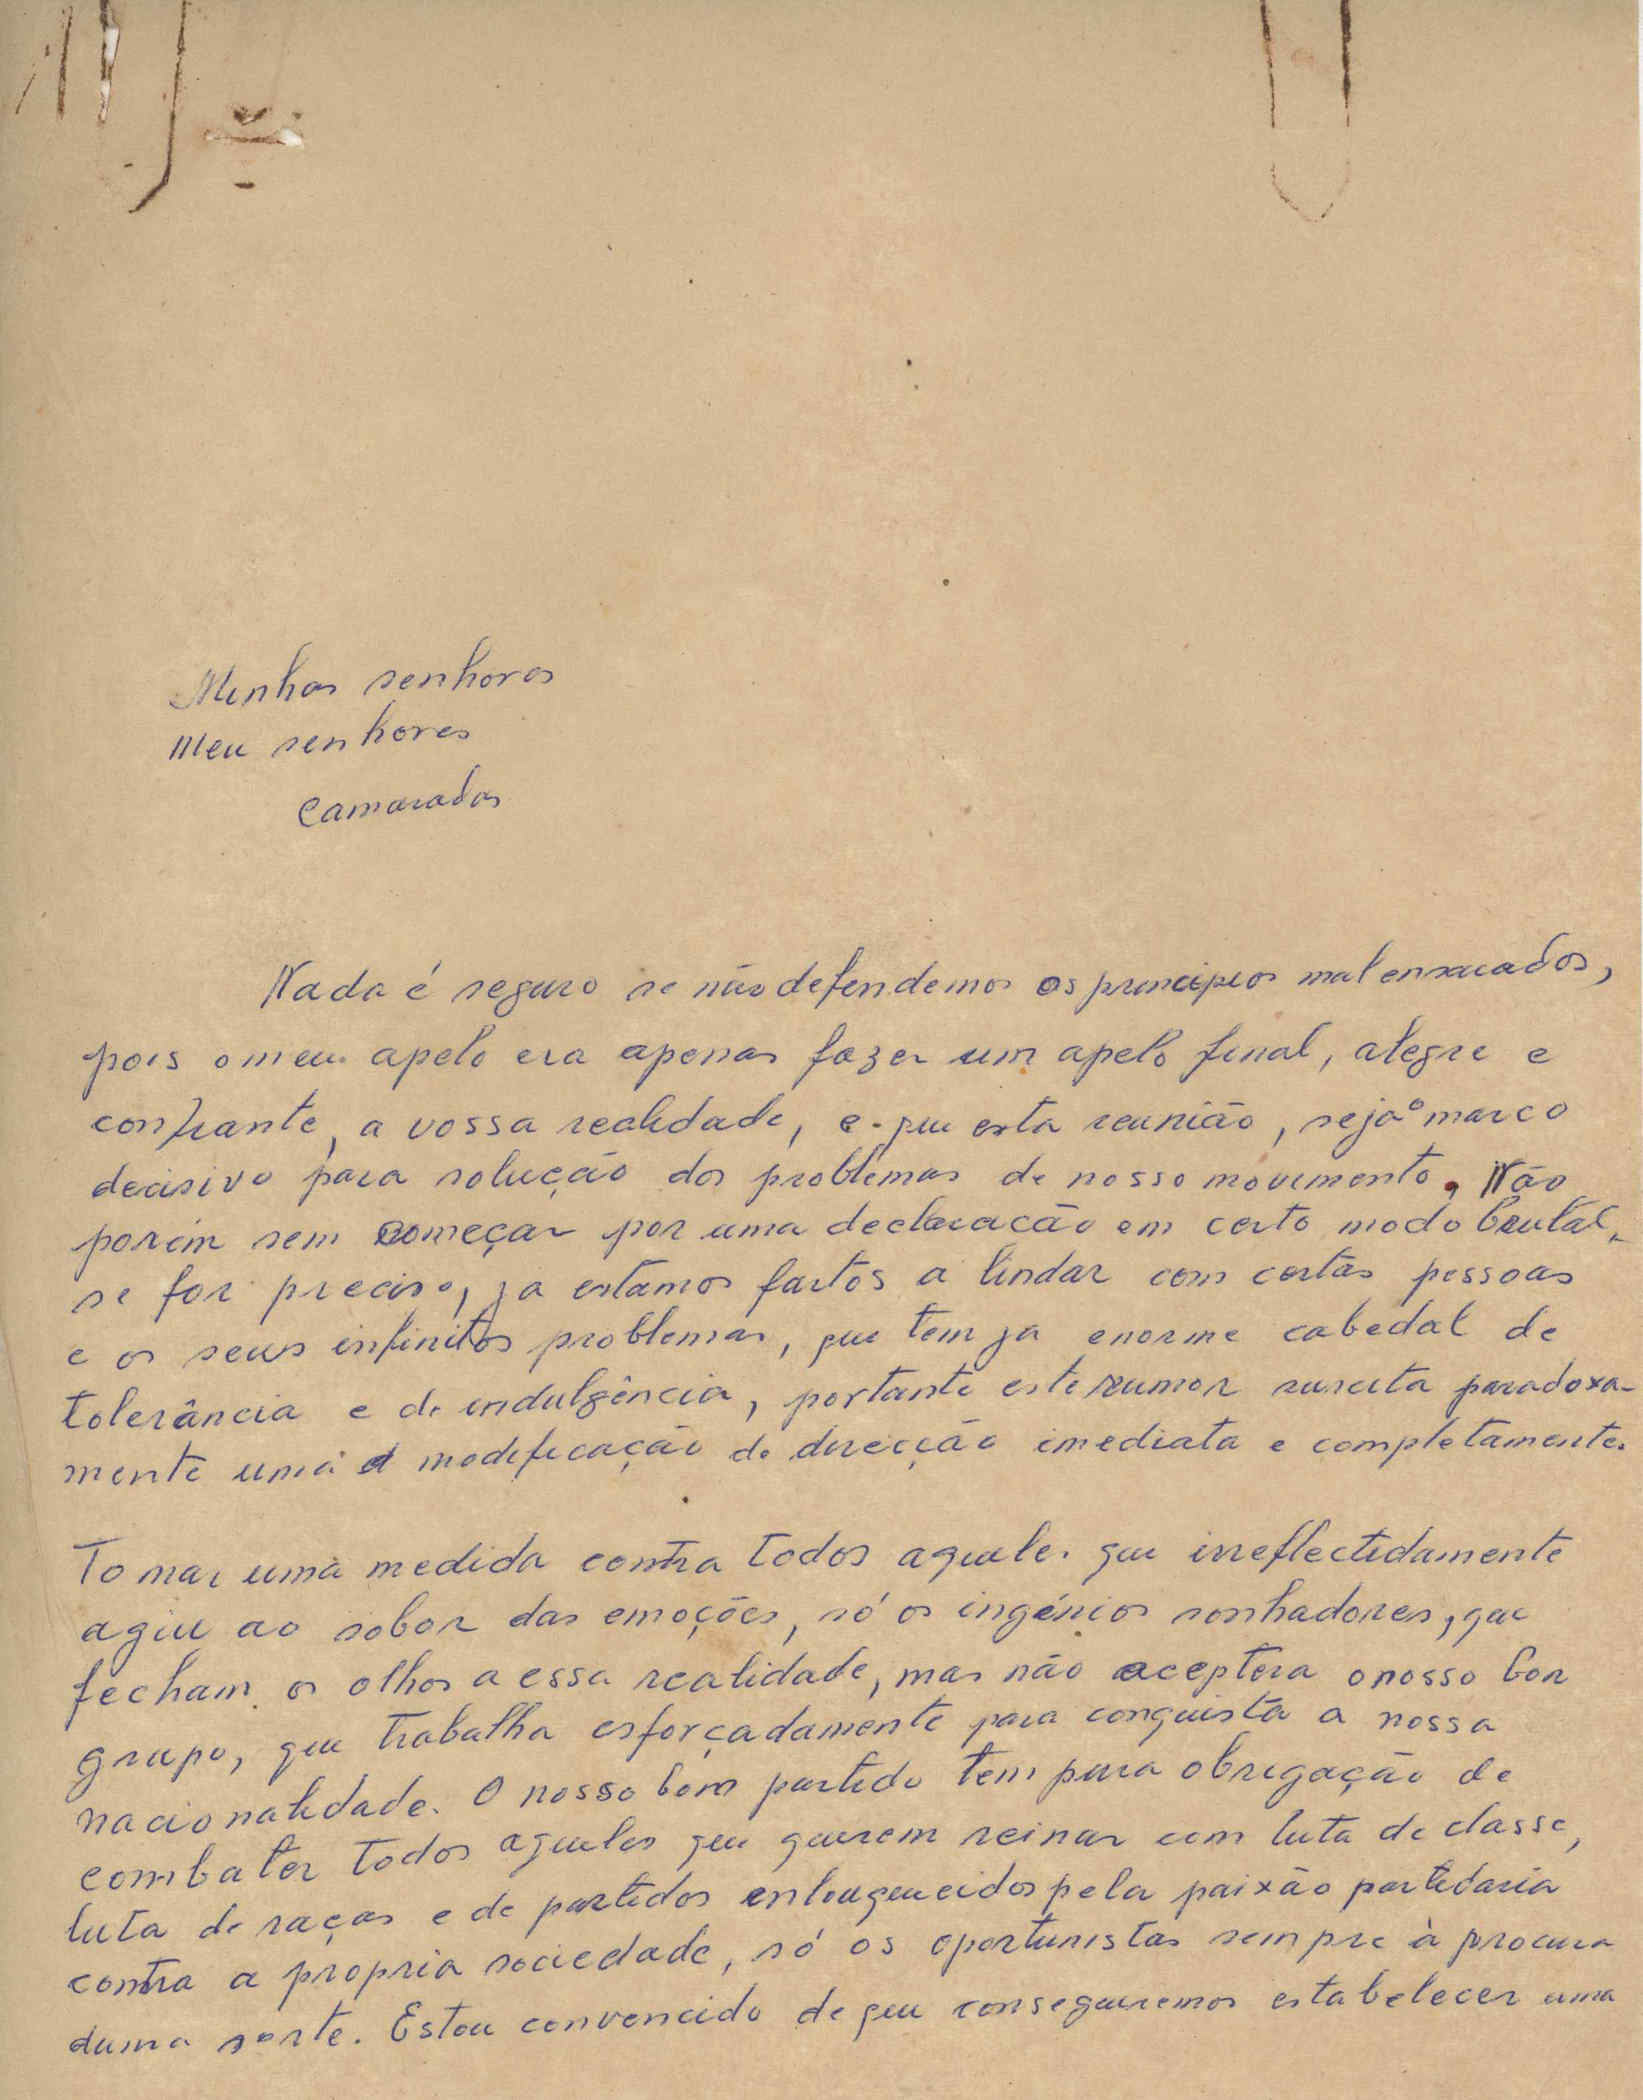 Minhas senhoras
Meu senhores
Camaradas
Nada é seguro se não defendemos os principios mal ensacados,
pois o meu apelo era apenas fazer um apelo final, alegre e
confiante, a vossa realidade, e que esta reunião, seja o marco
decisivo para solução dos problemas de nosso movimento. Não
porém sem começar por uma declaracão em certo modo brutal,
se for preciso, ja estamos fartos a lindar com certas pessoas
e os seus infinitos problemas, que tem ja enorme cabedal de
tolerância e de indulgência, portante este rumor suscita paradoxa-
mente uma modificação de direcção imediata e completamente.
Tomar uma medida contra todos aqueles que irreflectidamente
agiu ao sobor das emoções, só os ingénios sonhadores, que
fecham os olhos a essa realidade, mas não aceptera o nosso bon
grupo, que trabalha esforçadamente para conquista a nossa
nacionalidade. O nosso bom partido tem para obrigação de
combater todos aqueles que querem reinar com luta de classe,
luta de raças e de partidos enlouquecidos pela paixão partidaria
contra a propria sociedade, só os oportunistas sempre à procura
duma sorte. Estou convencido de que conseguiremos estabelecer uma